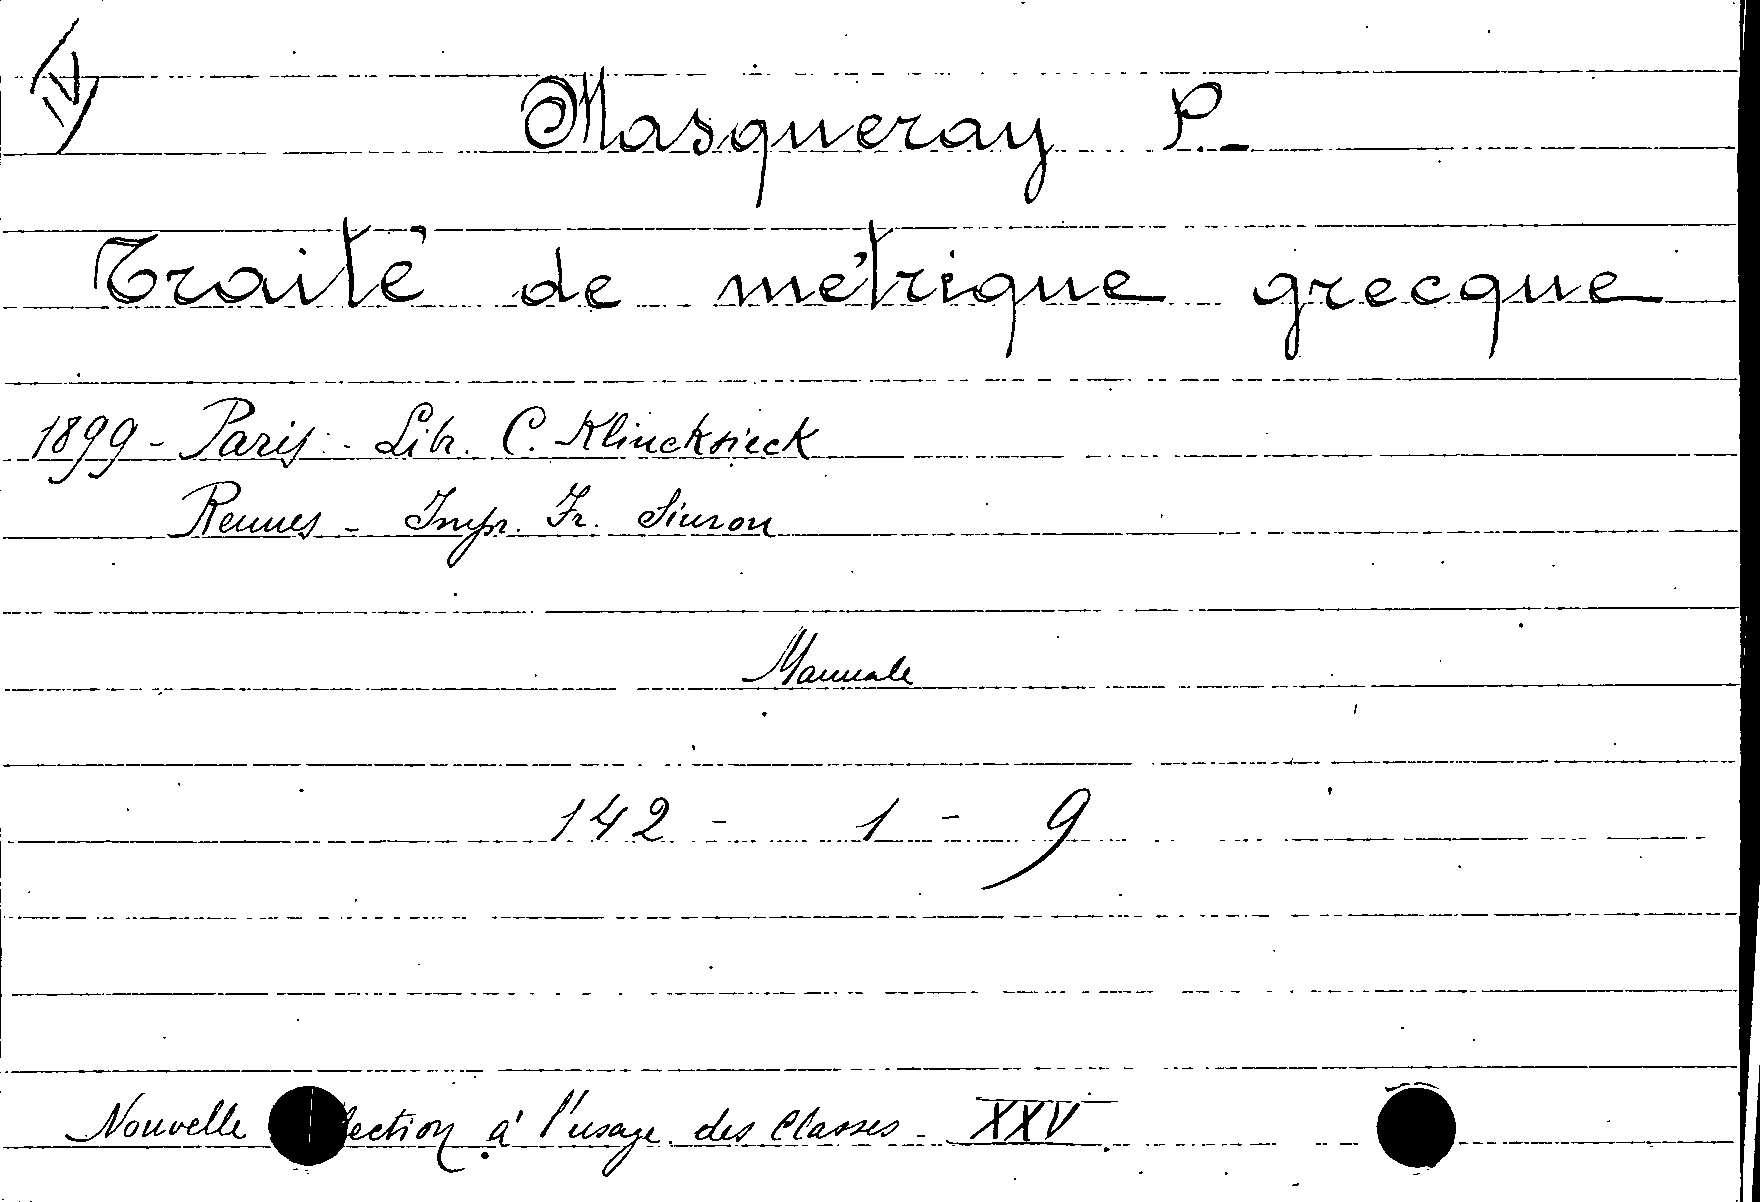 IV
Masqueray P.-
Traité de métrique grecque
1899 - Paris - Libr. C. Klincksieck
Rennes - Impr. Fr. Simon
Manuale
142 - 1 - 9
Nouvelle lection à l'usage des Classes - XXV